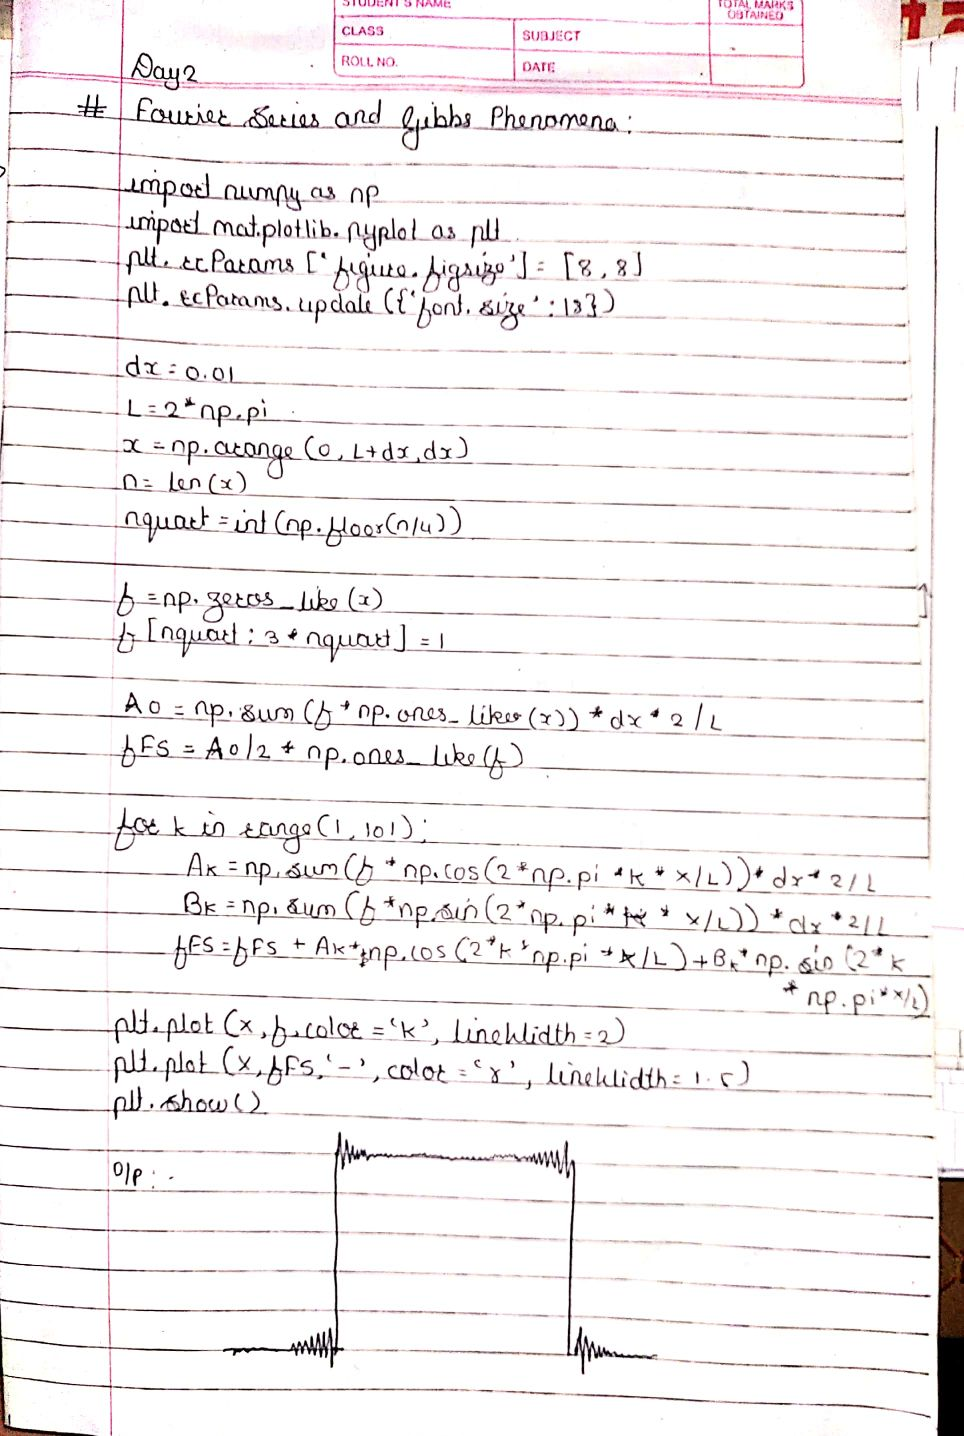 STUDENT'S NAME
TOTAL MARKS OBTAINED
CLASS
SUBJECT
ROLL NO.
DATE
Day 2
# Fourier Series and Gibbs Phenomena:
import numpy as np
import matplotlib.pyplot as plt
plt.rcParams ['figure.figsize'] = [8, 8]
plt.rcParams.update ({'font.size' : 18})
dx = 0.01
L = 2*np.pi
x = np.arange (0, L+dx, dx)
n = len (x)
nquart = int (np.floor(n/4))
f = np.zeros_like (x)
f [nquart : 3 * nquart] = 1
A0 = np.sum (f * np.ones_like (x)) * dx * 2 / L
fFS = A0/2 * np.ones_like (f)
for k in range (1, 101):
Ak = np.sum (f * np.cos (2*np.pi * k * x/L)) * dx * 2/L
Bk = np.sum (f * np.sin (2*np.pi * k * x/L)) * dx * 2/L
fFS = fFS + Ak * np.cos (2*k*np.pi * x/L) + Bk * np.sin (2*k
* np.pi * x/L)
plt.plot (x, f, color = 'k', lineWidth = 2)
plt.plot (x, fFS, '-', color = 'r', lineWidth = 1.5)
plt.show ()
O/P : -